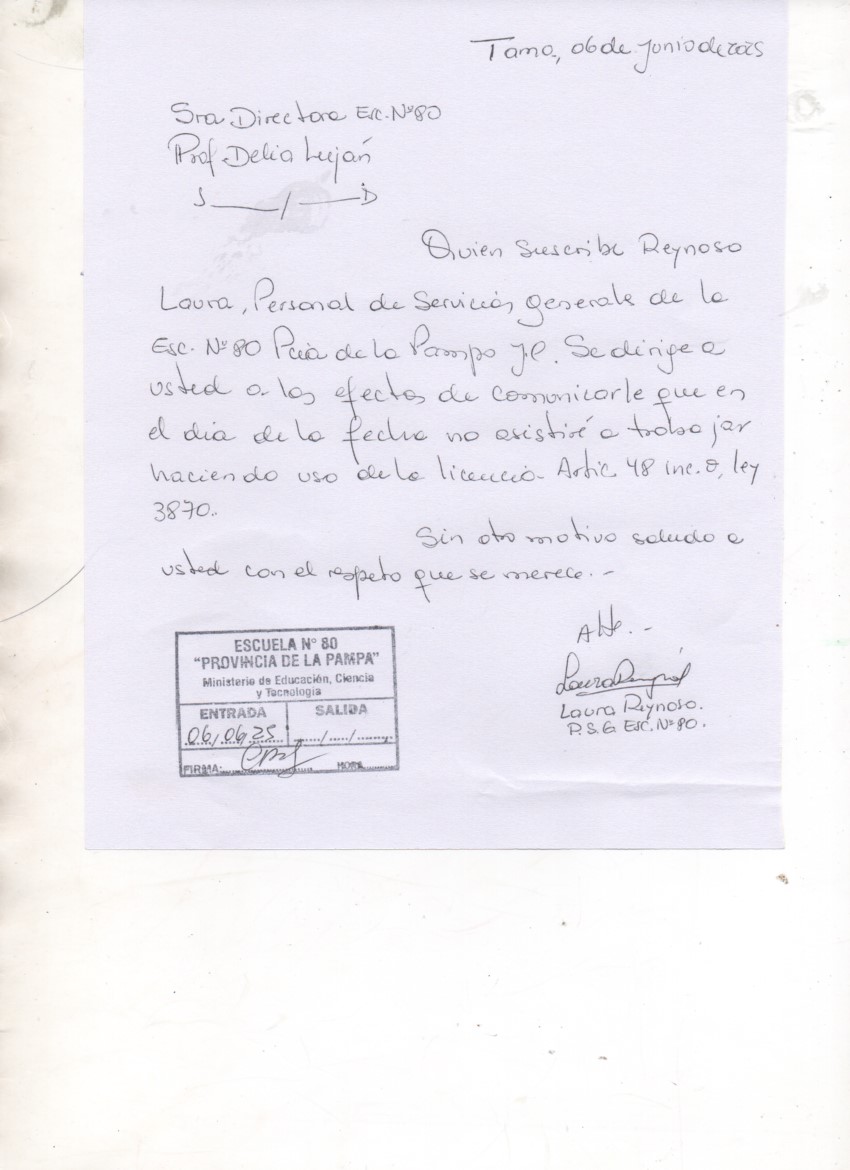 Tama, 06 de Junio de 2025
Sra Directora Esc. Nº 80
Prof. Delia Luján
S____/____D
Quien suscribe Reynoso
Laura, Personal de Servicios generales de la
Esc. Nº 80 Pcia de la Pampa J.C. Se dirige a
usted a los efectos de comunicarle que en
el día de la fecha no asistiré a trabajar
haciendo uso de la licencia Artic 48 inc. ley
3870..
Sin otro motivo saludo a
usted con el respeto que se merece. -
Atte. -
Laura Reynoso.
P.S.G Esc. Nº 80.
ESCUELA Nº 80
"PROVINCIA DE LA PAMPA"
Ministerio de Educación, Ciencia
y Tecnología
ENTRADA SALIDA
06/06/25 ...../...../........
FIRMA: HORA